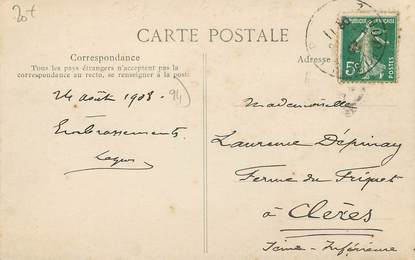 20€
CARTE POSTALE
Correspondance
Tous les pays étrangers n'acceptent pas la
correspondance au recto, se renseigner à la poste
Adresse
24 août 1908
94
Embrassements
Mademoiselle
Laurence Dépinay
Ferme du Friquet
à Clères
Seine-Inférieure
5c
POSTES